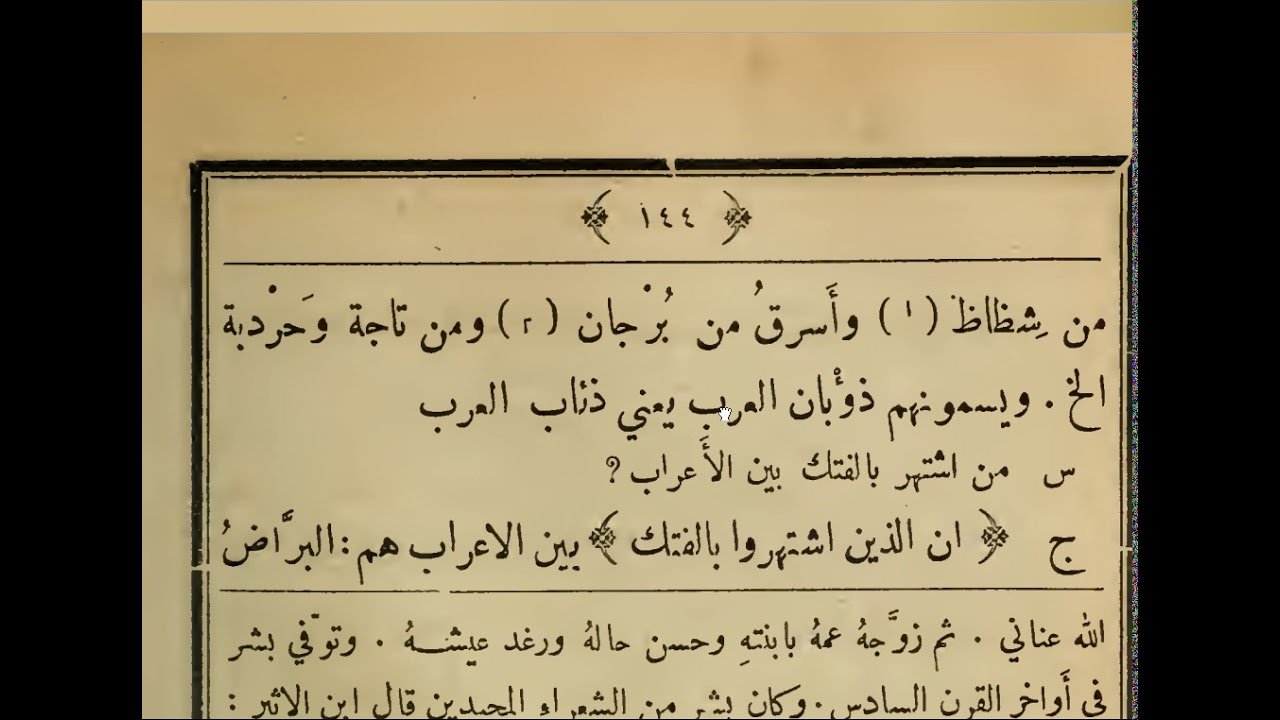 ١٤٤
من شِظاظ (١) وأَسرقُ من بُرْجان (٢) ومن تاجة وحَرْدبة
الخ . ويسمونهم ذوْبان العرب يعني ذئاب العرب
س من اشتهر بالفتك بين الأَعراب ؟
ج ﴿ ان الذين اشتهروا بالفتك ﴾ بين الاعراب هم : البرَّاضُ
الله عناني . ثم زوَّجهُ عمهُ بابنتهِ وحسن حالهُ ورغد عيشهُ . وتوفّي بشر
في أَواخر القرن السادس . وكان بشر من الشعراء المجيدين قال ابن الاثير :